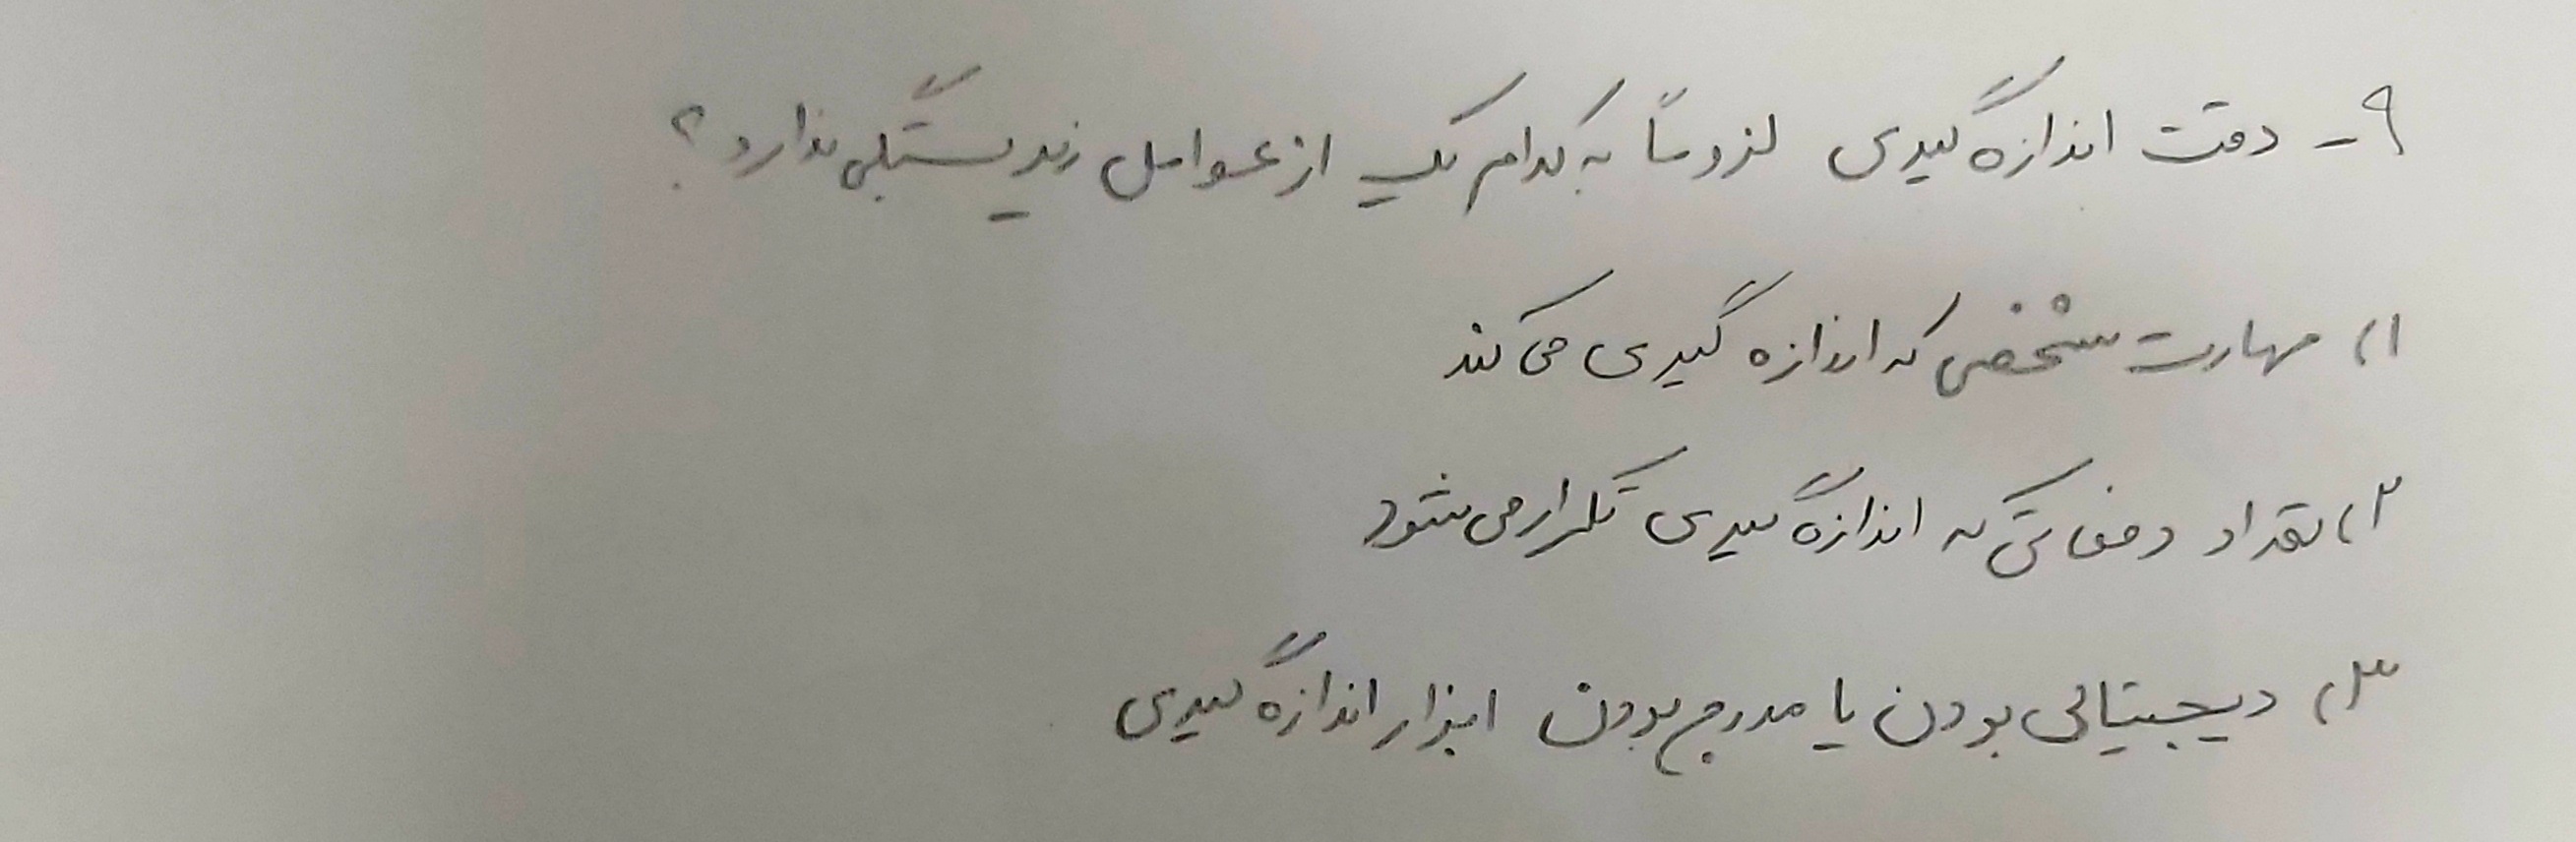 ۹- دقت اندازه گیری لزوماً به کدام یک از عوامل زیر بستگی ندارد؟
۱) مهارت شخصی که اندازه گیری می کند
۲) تعداد دفعاتی که اندازه گیری تکرار می شود
۳) دیجیتالی بودن یا مدرج بودن ابزار اندازه گیری